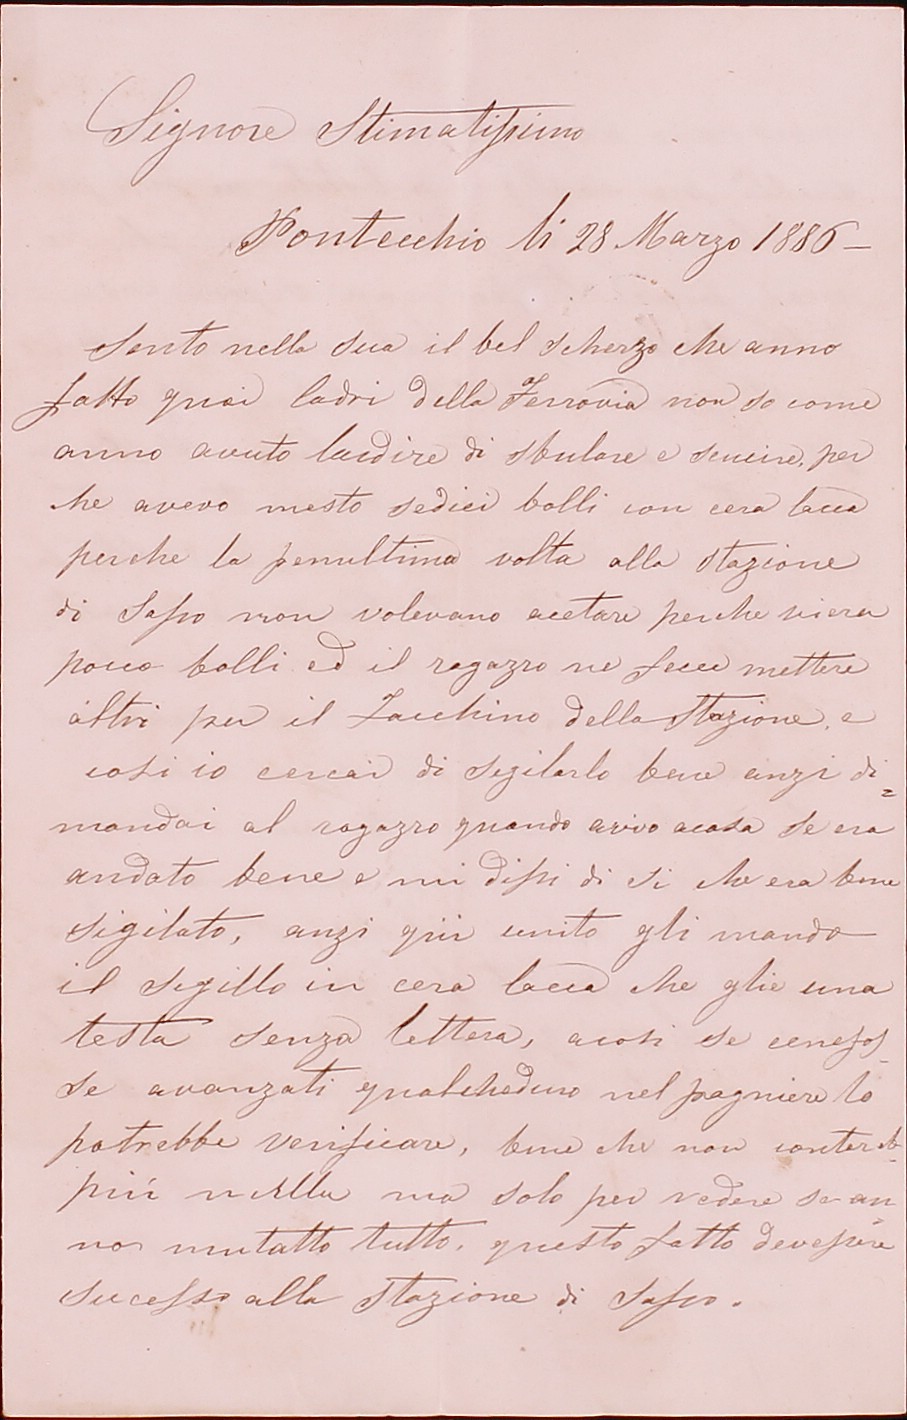 Signore Stimatissimo
Pontecchio li 28 Marzo 1886 —
Sento nella sua il bel scherzo che anno
fatto quei ladri della Ferrovia non so come
anno avuto lardire di sbulare e per
che avevo mesto sedici bolli con cera lacca
perche la penultima volta alla stazione
di Sasso non volevano acetare perche viera
pocco bolli ed il ragazzo ne fece mettere
altri per il facchino della Stazione, e
cosi io cercai di segilarlo bene anzi di=
mandai al ragazzo quando arivo acasa se era
andato bene e mi dissi di si che era bene
sigilato, anzi qui unito gli mando
il segillo in cera lacca che glie una
testa senza lettera, acosi se cenefos-
se avanzati qualcheduno nel pagniere lo
potrebbe verificare, bene che non conter eb-
piú nulla ma solo per vedere se an
no mutatto tutto. questo fatto devessere
sucesso alla Stazione di Sasso.